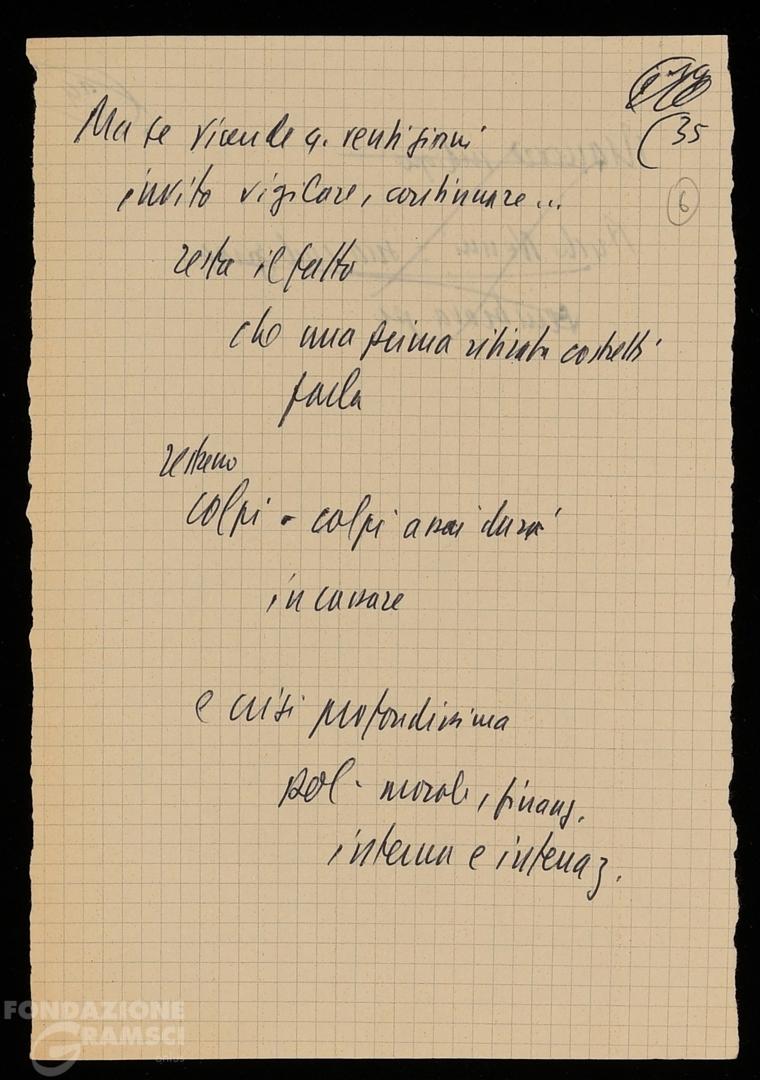 35
6
Ma se vicende q. venti giorni
invito vigilare, continuare...
resta il fatto
che una prima ritirata costretti
farla
restano
colpi - colpi assai duri
incassare
e crisi profondissima
pol. morale, finanz.
interna e internaz.
FONDAZIONE
GRAMSCI